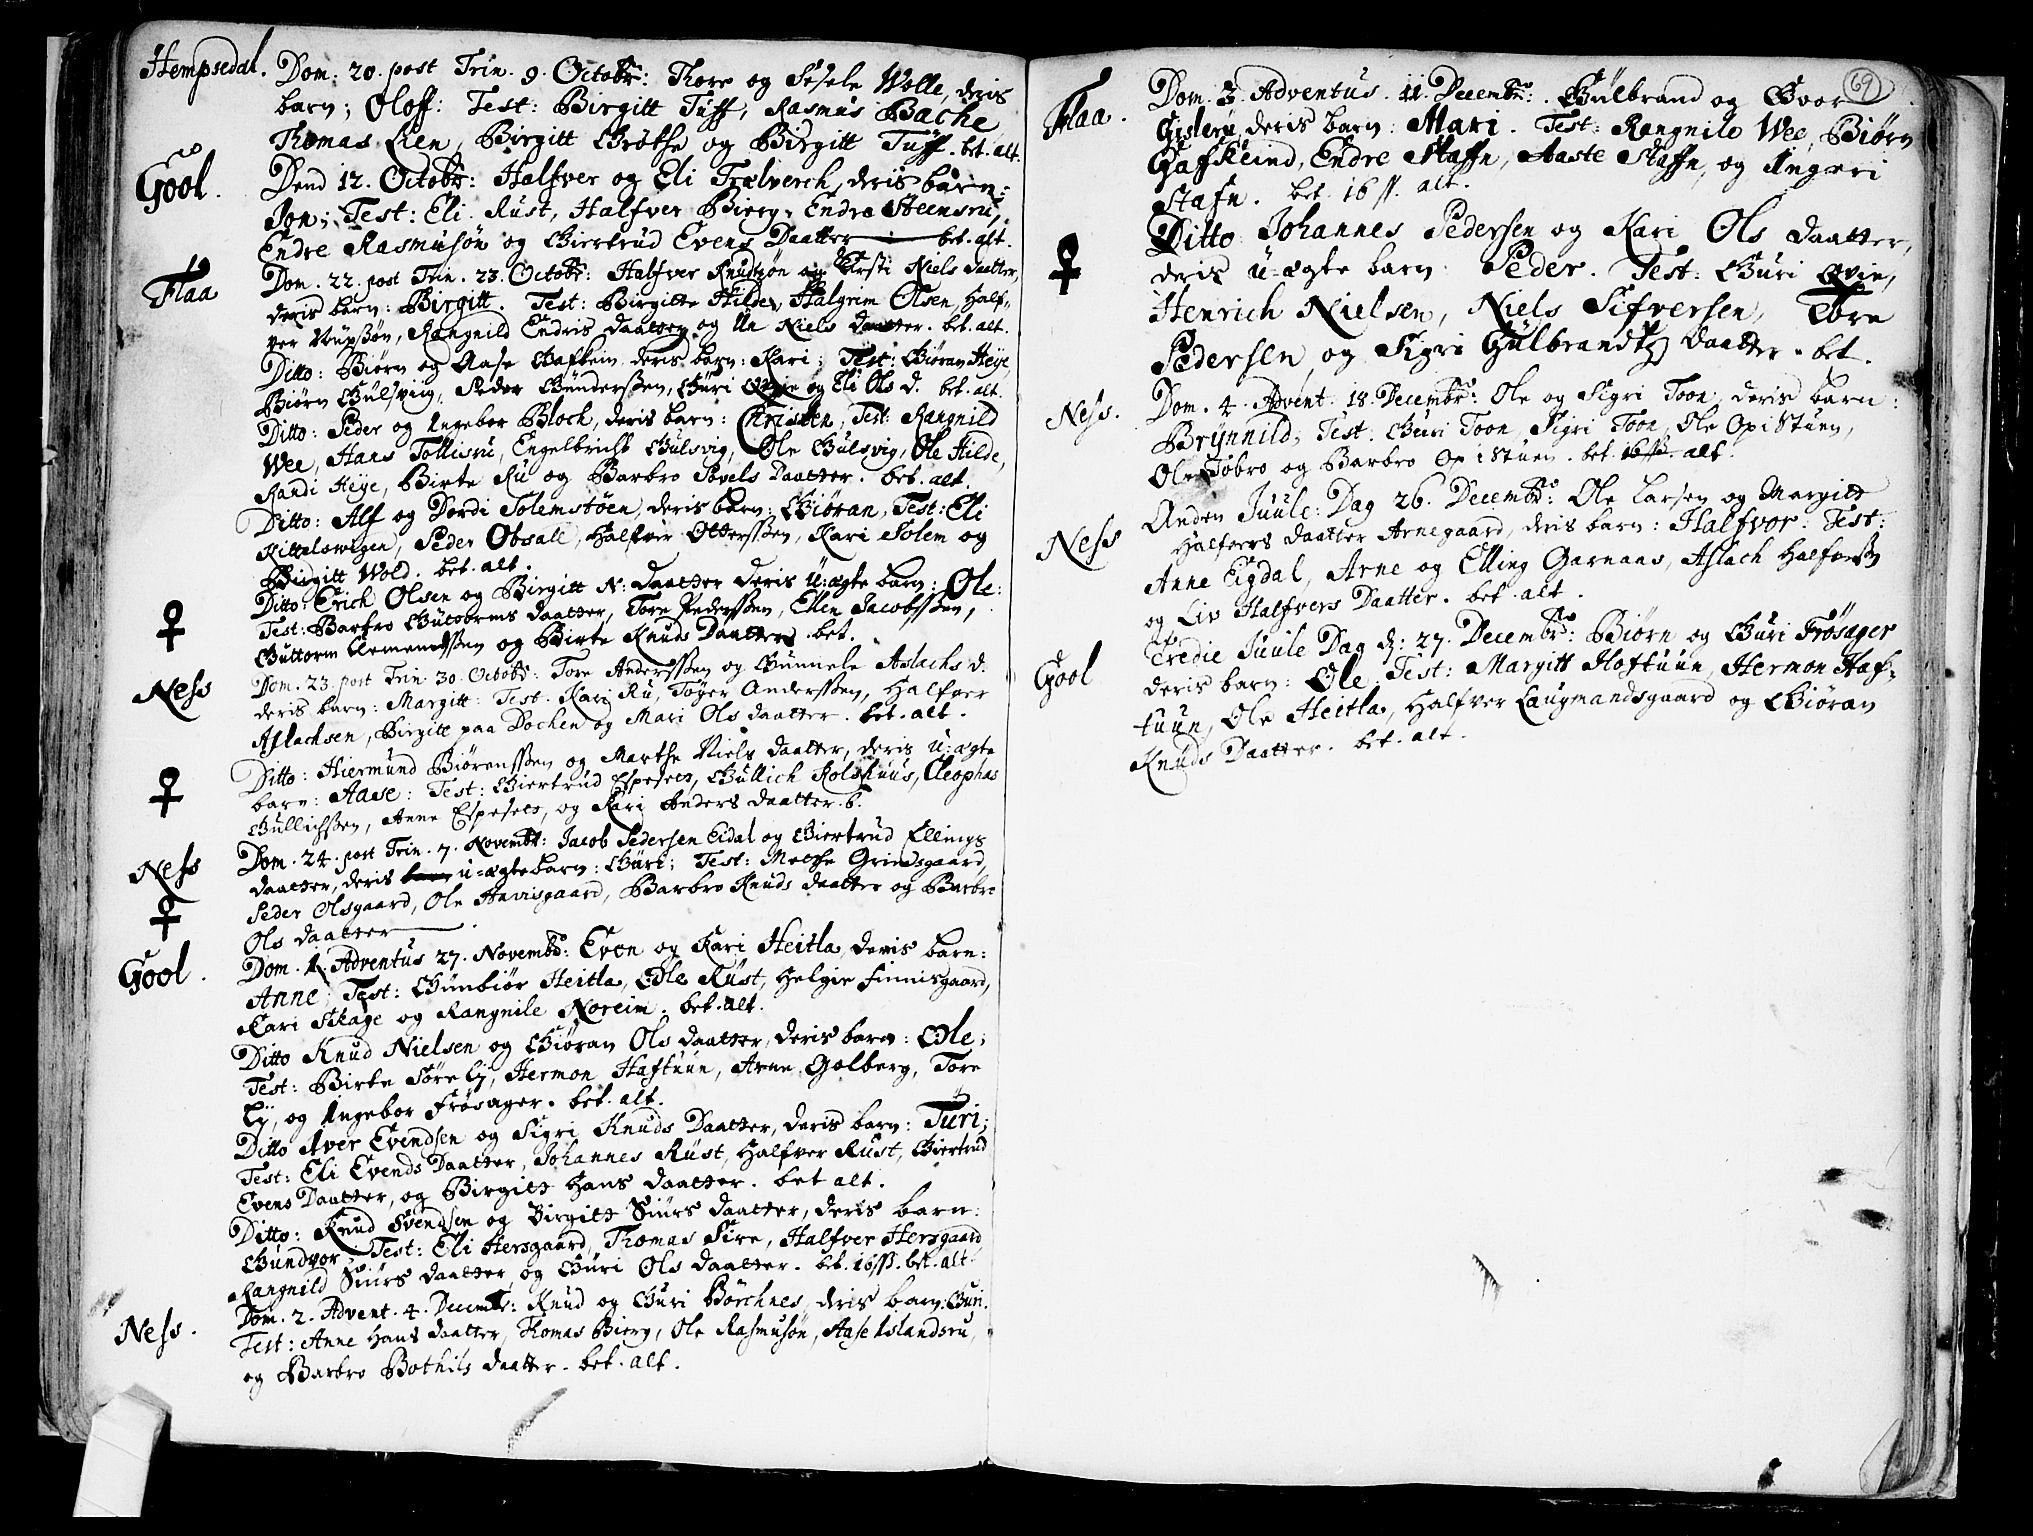 Hempsedal. Dom: 20. post Trin. 9. Octobr: Thore og Sesele Wolle, deris
barn; Oloff: Test: Birgitt Tuff, Rasmus Bache
Thomas Lien, Birgitt Grøthe og Birgitt Tuff. bet. alt.
Gool. Dend 12. Octobr: Halfver og Eli Trælverch, deris barn:
Jon; Test: Eli Rust, Halfver Bierg, Endre Steensru,
Endre Rasmusøn og Giertrud Evens Daatter — bet. alt.
Flaa Dom. 22. post Trin. 23. Octobr: Halfver Knudsøn og Kirsti Niels daatter,
deris barn: Birgitt. Test: Birgitte Hilde, Halgrim Olsen, Half-
ver, Rangnild Endris daatter og Un Niels daatter. bet. alt.
Ditto: Biørn og Aase Gafkein deris barn: Kari; Test: Giøran Heye,
Biørn Gulsviig, Peder Gunderssen, Guri og Eli Ols d. bet. alt.
Ditto: Peder og Ingebor Bloch, deris barn: Christen, Test: Rangnild
Wee, Hans Tollisru, Engelbricht Gulsvig, Ole Gulsvig, Ole Hilde,
Randi Heye, Birte Ru og Barbro Povels Daatter. bet. alt.
Ditto: Alf og Dordi Solemstøen, deris barn: Giøran, Test: Eli
Kittelsvigen, Peder Obsale, Halfver Otterssen, Kari Solem og
Birgitt Wold. bet. alt.
Ditto: Erich Olsen og Birgitt N: daatter deris u:ægte barn: Ole:
♀ Test: Barbro Gutorms daatter, Tore Pederssen, Ellen Jacobssen,
Guttorm Clemendssen og Birte Knuds Daatter. bet.
Ness Dom. 23. post Trin. 30. Octobr: Tore Anderssen og Gunnele Aslachs d.
deris barn: Margitt: Test. Kari Ru, Tøger Anderssen, Halfver
Aslachsen, Birgitt paa Dochen og Mari Ols daatter. bet. alt.
Ditto: Hiermund Biørenssen og Marthe Niels daatter, deris u:ægte
♀ barn: Aase: Test: Giertrud Espeset, Gullich Rolshuus, Cleophas
Gullichssen, Anne Espeset, og Kari Anders daatter. b.
Ness Dom. 24. post Trin. 7. Novembr: Jacob Pedersen Eidal og Giertrud Ellings
daatter, deris u=ægte barn: Guri; Test: Methe Grimsgaard,
♀ Peder Olsgaard, Ole Havisgaard, Barbro Knuds daatter og Barbro
Ols daatter —
Gool. Dom. 1. Adventus 27. Novembr: Even og Kari Heitla, deris barn:
Anne; Test: Gunbiør Heitla, Ole Rust, Helgie Finnisgaard,
Kari Skage og Rangnile Noreim. bet. alt.
Ditto Knud Nielsen og Giøran Ols daatter, deris barn: Ole;
Test: Birte Søre Lj, Hermon Haftuun, Arne Golberg, Tore
Lj, og Ingebor Frøsager. bet. alt.
Ditto Aver Evendsen og Sigri Knuds Daatter, deris barn: Turi;
Test: Eli Evends Daatter, Johannes Rust, Halfver Rust, Giertrud
Evens Daatter, og Birgitt Hans daatter. bet alt.
Ditto: Knud Svendsen og Birgitt Siurs daatter, deris barn:
Gundvor; Test: Eli Hersgaard, Thomas Sire, Halfver Hersgaard
Rangnild Siurs daatter og Guri Ols daatter. bet. 16 ss. bet. alt.
Ness. Dom. 2. Advent. 4. Decembr: Knud og Guri Børchnes, deris barn: Guri.
Test: Anne Hans daatter, Thomas Bierg, Ole Rasmusøn, Aase Islandsru,
og Barbro Bothils daatter. bet. alt.
69
Flaa. Dom. 3. Adventus. 11. Decembr: Gulbrand og Gvor
Gislerud, deris barn: Mari. Test: Rangnile Wee, Biørn
Gafkeind, Endre Staffn, Aaste Staffn, og Ingeri
Stafn. bet. 16 ss. alt.
♀ Ditto Johannes Pedersen og Kari Ols daatter,
deris u=ægte barn: Peder. Test: Guri,
Henrich Nielsen, Niels Sifversen, Tore
Pedersen og Sigri Gulbrands daatter. bet.
Ness. Dom. 4. Advent. 18. Decembr: Ole og Sigri Toon, deris barn:
Brynnild; Test. Guri Toon, Sigri Toon, Ole Opistuen,
Ole Tobro og Barbro Opistuen. bet. 16 ss. alt.
Ness Anden Juule: Dag 26. Decembr: Ole Larsen og Margitt
Halfvers daatter Arnegaard, deris barn: Halfvor: Test:
Anne Eigdal, Arne og Elling Garnaas, Aslach Halfverss
og Liv Halfvers Daatter. bet. alt.
Gool Tredie Juule Dag d: 27. Decembr: Biørn og Guri Frøsager
deris barn: Ole: Test: Margitt Hoftuun, Hermon Haf-
tuun, Ole Heitla, Halfver Laugmandsgaard og Giøran
Knuds Daatter. bet. alt.